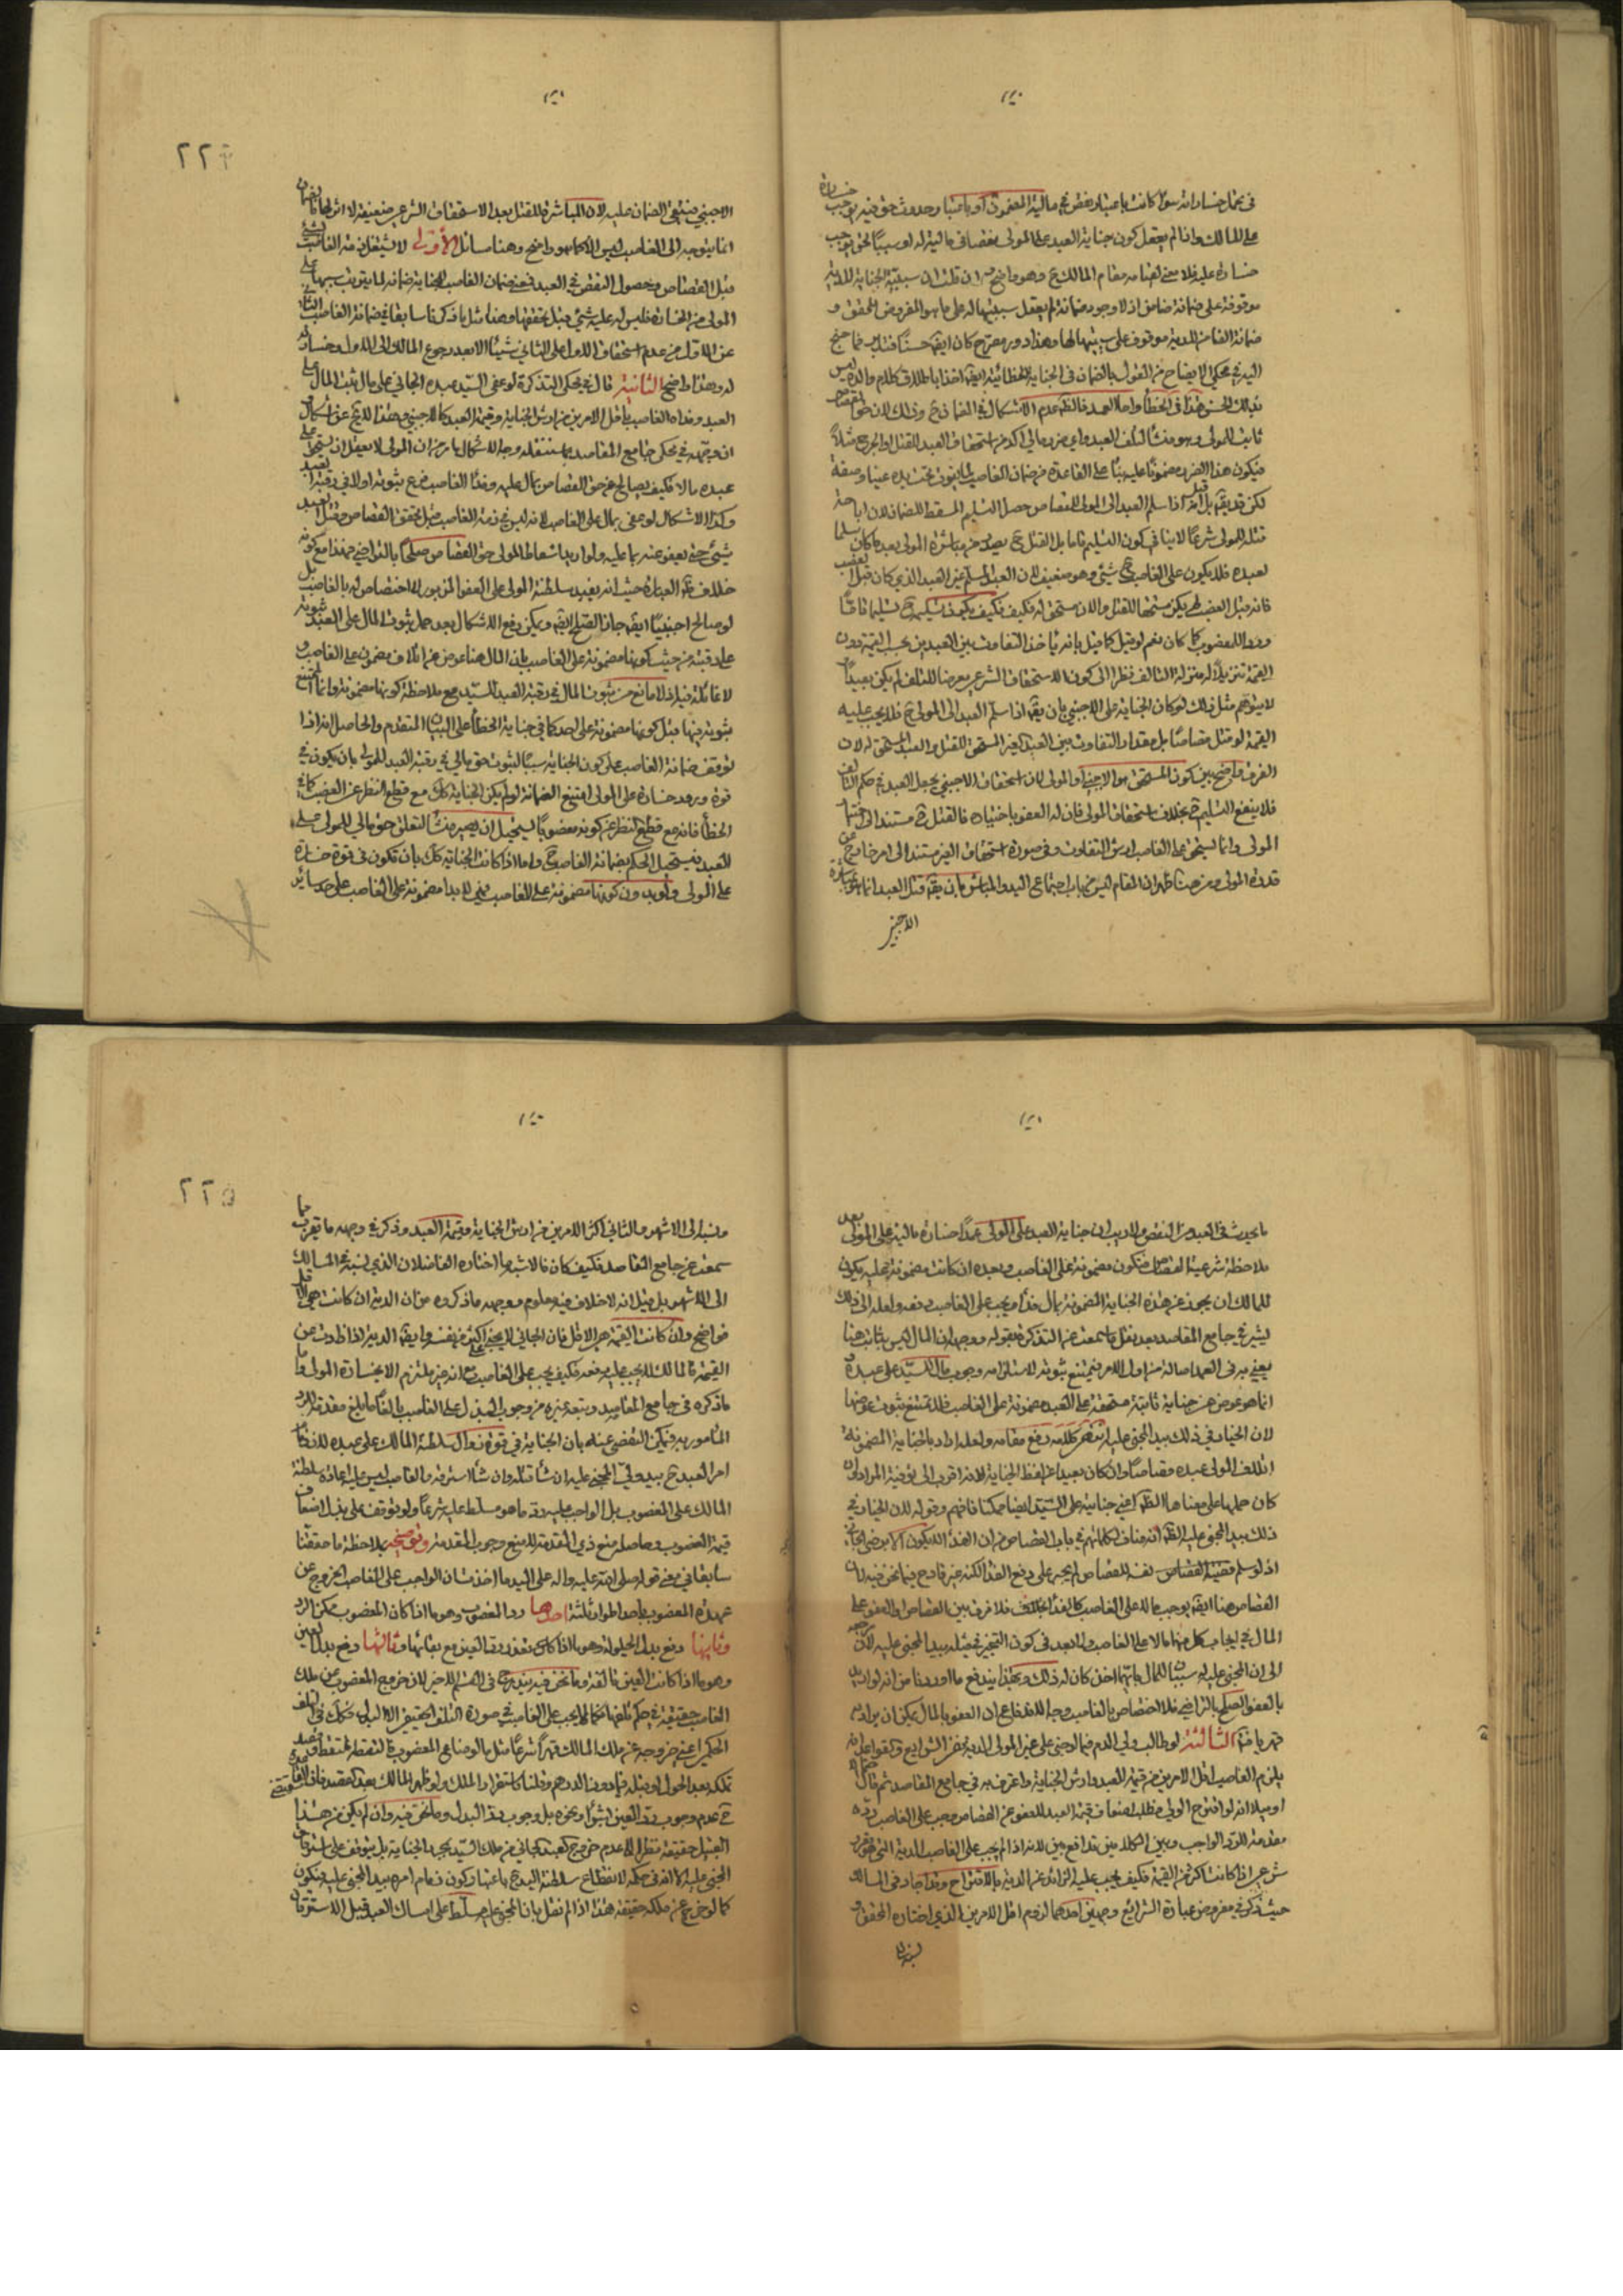 في تحمل خسارته سواء كانت باعتبار نقص في مالية المغصوب او باعتبار حدوث حق فيه يوجب خسارة
على المالك واذا لم يعقل كون جناية العبد على المولى نقصا في مالية له او سببا لحق يوجب
خسارة عليه فلا معنى لقيامه مقام المالك ح وهو واضح فان قلت ان سببية الجناية للدية
موقوفة على ضمانة ضامن اذ لا وجود ضمانة لم يعقل سببيتها له على ما هو المفروض المحقق و
ضمانة الغاصب للدية موقوف على سببيتها لها وهذا دور مصرح كان ايضا حسنا فتدبر فما جنح
اليه في محكي الايضاح من القول بالضمان في الجناية الخطائية ايضا اخذا باطلاق كلام والده ليس
بذلك الحسن هذا في الخطأ واما العمد فالظاهر عدم الاشكال في الضمان ح وذلك لان حق القصاص
ثابت للمولى وهو منشأ لتلف العبد واي ضرر مالي اكد من استحقاق العبد للقتل او الجرح مثلا
فيكون هذا الضرر مضمونا عليه بناء على القاعدة من ضمان الغاصب لما يفوت تحت يده عينا وصفة
لكن قد يقال بل قيل انه اذا سلم العبد الى المولى للقصاص حصل التسليم المسقط للضمان لان اباحة
قتله للمولى شرعا لا ينافي كون التسليم تاما بل القتل ح يصدر من مباشرة المولى بعد ما كان سلما
لعبده فلا يكون على الغاصب ح شيء وهو ضعيف لان العبد المسلم غير العبد الذي كان قبل الغصب
فانه قبل الغصب لم يكن مستحقا للقتل والان مستحق له فكيف يكون تسليمه ح تسليما تاما
وردا للمغصوب كما كان نعم لو قيل كما قيل بانه يأخذ التفاوت بين العبدين بحسب القيمة دون
القيمة تنزيلا له منزلة التالف نظرا الى كون الاستحقاق الشرعي معرضا للتلف لم يكن بعيدا
لا يتوهم مثل ذلك لو كان الجناية على الاجنبي بان يقال اذا سلم العبد الى المولى ح فلا يجب عليه
القيمة لو قتل قصاصا بل مقدار التفاوت بين العبد الغير المستحق للقتل والعبد المستحق له لان
الفرق واضح بين كون المستحق هو الاجنبي او المولى لان استحقاق الاجنبي يجعل العبد في حكم التالف
فلا ينفع التسليم ح بخلاف استحقاق المولى فان له العفو باختياره فالقتل ح مستند الى اختيار
المولى وانما يستحق على الغاصب ارش التفاوت وفي صورة استحقاق الغير مستند الى امر خارج عن
قدرة المولى ومن هنا ظهر ان المقام ليس من باب اجتماع اليد والمباشر بان يقال قتل العبد انما هو عبارة
الاجنبي
٢٢٤
الاجنبي فينتفي الضمان عليه لان المباشرة للقتل بعد الاستحقاق الشرعي ضعيفة لا اثر لها فالضمان
انما يتوجه الى الغاصب ليس الا كما هو واضح وهنا مسائل الأولى لا يشتغل ذمة الغاصب بشيء
قبل القصاص وحصول النقص في العبد فمعنى ضمان الغاصب الجناية ضمانه لما يترتب بسببها على
المولى من الخسارة فليس له عليه شيء قبل تحققها وهذا مثل ما ذكرنا سابقا في ضمانة الغاصب الثاني
عن الاول من عدم استحقاق الاول على الثاني شيئا الا بعد رجوع المالك الى الاول وخسارته
له وهذا واضح الثانية قال في محكي التذكرة لو عفى السيد عبده الجاني على مال ثبت المال على
العبد وفداه الغاصب باقل الامرين من ارش الجناية وقيمة العبد كالاجنبي وهذا لا يخ عن اشكال
ان وجهه في محكي جامع المقاصد بما ستنقله وجه الاشكال ما مر من ان المولى لا يعقل ان يستحق على
عبده مالا فكيف يصالح عن حق القصاص بمال عليه وفداء الغاصب فرع ثبوته اولا في رقبة العبد
وكذا الاشكال لو عفى بمال على الغاصب لانه ليس في ذمة الغاصب قبل تحقق القصاص وقتل العبد
شيء حتى يعفو عنه بما عليه ولو اريد اسقاط المولى حق القصاص صلحا بالتراضي فهذا مع كونه
خلاف ظاهر العبارة حيث انه يفيد سلطنة المولى على العفو المزبور لا اختصاص له بالغاصب بل
لو صالح اجنبيا ايضا جاز الصلح ايضا ويمكن دفع الاشكال بعد حمل ثبوت المال على العبد ثبوته
على رقبته من حيث كونها مضمونة على الغاصب بان المال هنا عوض عن اتلاف مضمون على الغاصب و
لا غائلة فيه اذ لا مانع من ثبوت المال في رقبة العبد للسيد مع ملاحظة كونها مضمونة وانما الممتنع
ثبوته فيها قبل كونها مضمونة على احد كما في جناية الخطأ على البيان المتقدم والحاصل انه اذا
توقف ضمانة الغاصب على كون الجناية سببا لثبوت حق مالي في رقبة العبد للمولى بان يكون في
قوة ورود خسارة على المولى امتنع الضمانة لو لم يكن الجناية كك مع قطع النظر عن الغصب كما في
الخطأ فانه مع قطع النظر عن كونه مغصوبا يستحيل ان يصير منشأ لتعلق حق مالي للمولى على
العبد فيستحيل الحكم بضمانة الغاصب ح واما اذا كانت الجناية كك بان تكون في قوة خسارة
على المولى ولو بدون كونها مضمونة على الغاصب فهي لا بد مضمونة على الغاصب على حد سائر
ما يحدث في العبد من النقص ولا ريب ان جناية العبد على المولى عمدا خسارة مالية على المولى بعد
ملاحظة شرعية القصاص فتكون مضمونة على الغاصب وبعده ان كانت مضمونة عليه يكون
للمالك ان يعوض عن هذه الجناية المضمونة بمال فداء ويجب على الغاصب دفعه ولعله الى ذلك
يشير في جامع المقاصد بعد نقل ما سمعت عن التذكرة بقوله ووجهه ان المال ليس بثابت هنا
يعني به في العمد اصالة من اول الامر فيمتنع ثبوته لاستلزامه وجوب مال للسيد على عبده و
انما هو عوض عن جناية ثابتة مستحقة على العبد مضمونة على الغاصب فلا يمتنع ثبوت عوضها
لان الخيار في ذلك بيد المجني عليه انتهى كلامه رفع مقامه ولعله اراد بالجناية المضمونة
اتلاف المولى عبده قصاصا وان كان بعيدا عن لفظ الجناية لانه اقرب الى توفية المراد وان
كان حملها على معناها الظاهر اعني جنايته على السيد ايضا ممكنا فافهم وقوله لان الخيار في
ذلك بيد المجني عليه الظاهر انه مناف لكلماتهم في باب القصاص من ان الفداء لا يكون الا برضى الجاني
اذ لو سلم نفسه للقصاص لم يجبر على دفع الفداء لكنه غير قادح فيما نحن فيه لان
القصاص هنا ايضا يوجب ماله على الغاصب كالفداء بخلاف فلا فرق بين القصاص والعفو على
المال في ايجاب كل منهما مالا على الغاصب ولا بعد في كون التخيير في مثله بيد المجني عليه لان مرجعه
الى ان المجني عليه له سببان للمال بايهما اخذ كان له ذلك وبهذا يندفع ما اوردنا من انه لو اريد
بالعفو الصلح بالتراضي فلا اختصاص بالغاصب وجه الاندفاع ان العفو بالمال يمكن ان يراد به
قهريا فتدبر الثالثة لو طالب ولي الدم فيما لو جنى على غير المولى الدية فعن الشرايع والقواعد انه
يلزم الغاصب اقل الامرين من قيمة العبد وارش الجناية واعترف به في جامع المقاصد ثم قال ضمانا
او ميلا انه لو اقترح الولي فطلب اضعاف قيمة العبد للعفو عن القصاص وجب على الغاصب رده
مقدمة للرد الواجب وبين الكلامين تدافع بين لانه اذا لم يجب على الغاصب الدية التي مقدر
شرعي اذا كانت اكثر من القيمة فكيف يجب عليه الزائد عن الدية بالاقتراح وقد اجاد في المسالك
حيث ذكر في مفروض عبارة الشرائع وجهين احدهما لزوم اقل الامرين الذي اختاره المحقق و
نسبه الى
٢٢٥
ونسبه الى الاشهر والثاني اكثر الامرين من ارش الجناية وقيمة العبد وذكر في وجهه ما يقرب مما
سمعت عن جامع المقاصد فكيف كان فالاشهر ما اختاره الفاضلان الذي نسبه في المسالك
الى الاشهر بل قيل انه لا خلاف فيه معلوم ووجهه ما ذكروه من ان الدية ان كانت هي الاقل
فواضح وان كانت القيمة هي الاقل فان الجاني لا يجني اكثر من نفسه وايضا الدية اذا زادت عن
القيمة فالمالك لا يجب عليه دفعه فكيف يجب على الغاصب مع انه غير ملتزم الا بخسارة المولى واما
ما ذكره في جامع المقاصد وتبعه غيره من وجوب البذل على الغاصب بالغا ما بلغ مقدمة للرد
المأمور به فيمكن التفصي عنه بان الجناية في قوة زوال سلطنة المالك على عبده لان زمام
امر العبد ح بيد ولي المجني عليه ان شاء قتله وان شاء استرقه والغاصب ليس عليه اعادة سلطنة
المالك على المغصوب بل الواجب عليه رد ما هو مسلط عليه شرعا ولو توقف على بذل اضعاف
قيمة المغصوب وحاصله منع ذي المقدمة لا منع وجوب المقدمة وتوضيحه بملاحظة ما حققنا
سابقا في معنى قوله صلى الله عليه واله على اليد ما اخذت ان الواجب على الغاصب الخروج عن
عهدة المغصوب باحد امور ثلثة احدها رد المغصوب وهو ما اذا كان المغصوب ممكن الرد
وثانيها دفع بدل الحيلولة وهو ما اذا كان يتعذر رد العين مع بقائها وثالثها دفع بدل العين
وهو ما اذا كانت العين تالفة وما نحن فيه يندرج في القسم الاخير لان خروج المغصوب عن ملك
الغاصب حقيقة في حكم تلفها فكما يجب على الغاصب في صورة التلف الحقيقي البدل فكك في التلف
الحكمي اعني خروجه عن ملك المالك قهرا شرعا مثل ما لو ضاع المغصوب فالتقطه ملتقط قصد
تملكه بعد الحول او قبله فيما دون الدرهم وقلنا باستقرار الملك ولو ظهر المالك بعد القصد فان القاعدة تقتضي
ح عدم وجوب رد العين بشراء او نحوه بل وجوب رد البدل وما نحن فيه وان لم يكن من هذا
القبيل حقيقة نظرا الى عدم خروج العبد الجاني عن ملك السيد بمجرد الجناية بل يتوقف على استرقاق
المجني عليه الا انه في حكمه لانقطاع سلطنة السيد ح باعتبار كون زمام امره بيد المجني عليه فيكون
كما لو خرج عن ملكه حقيقة هذا اذا لم نقل بان المجني عليه مسلط على امساك العبد قبل الاسترقاق